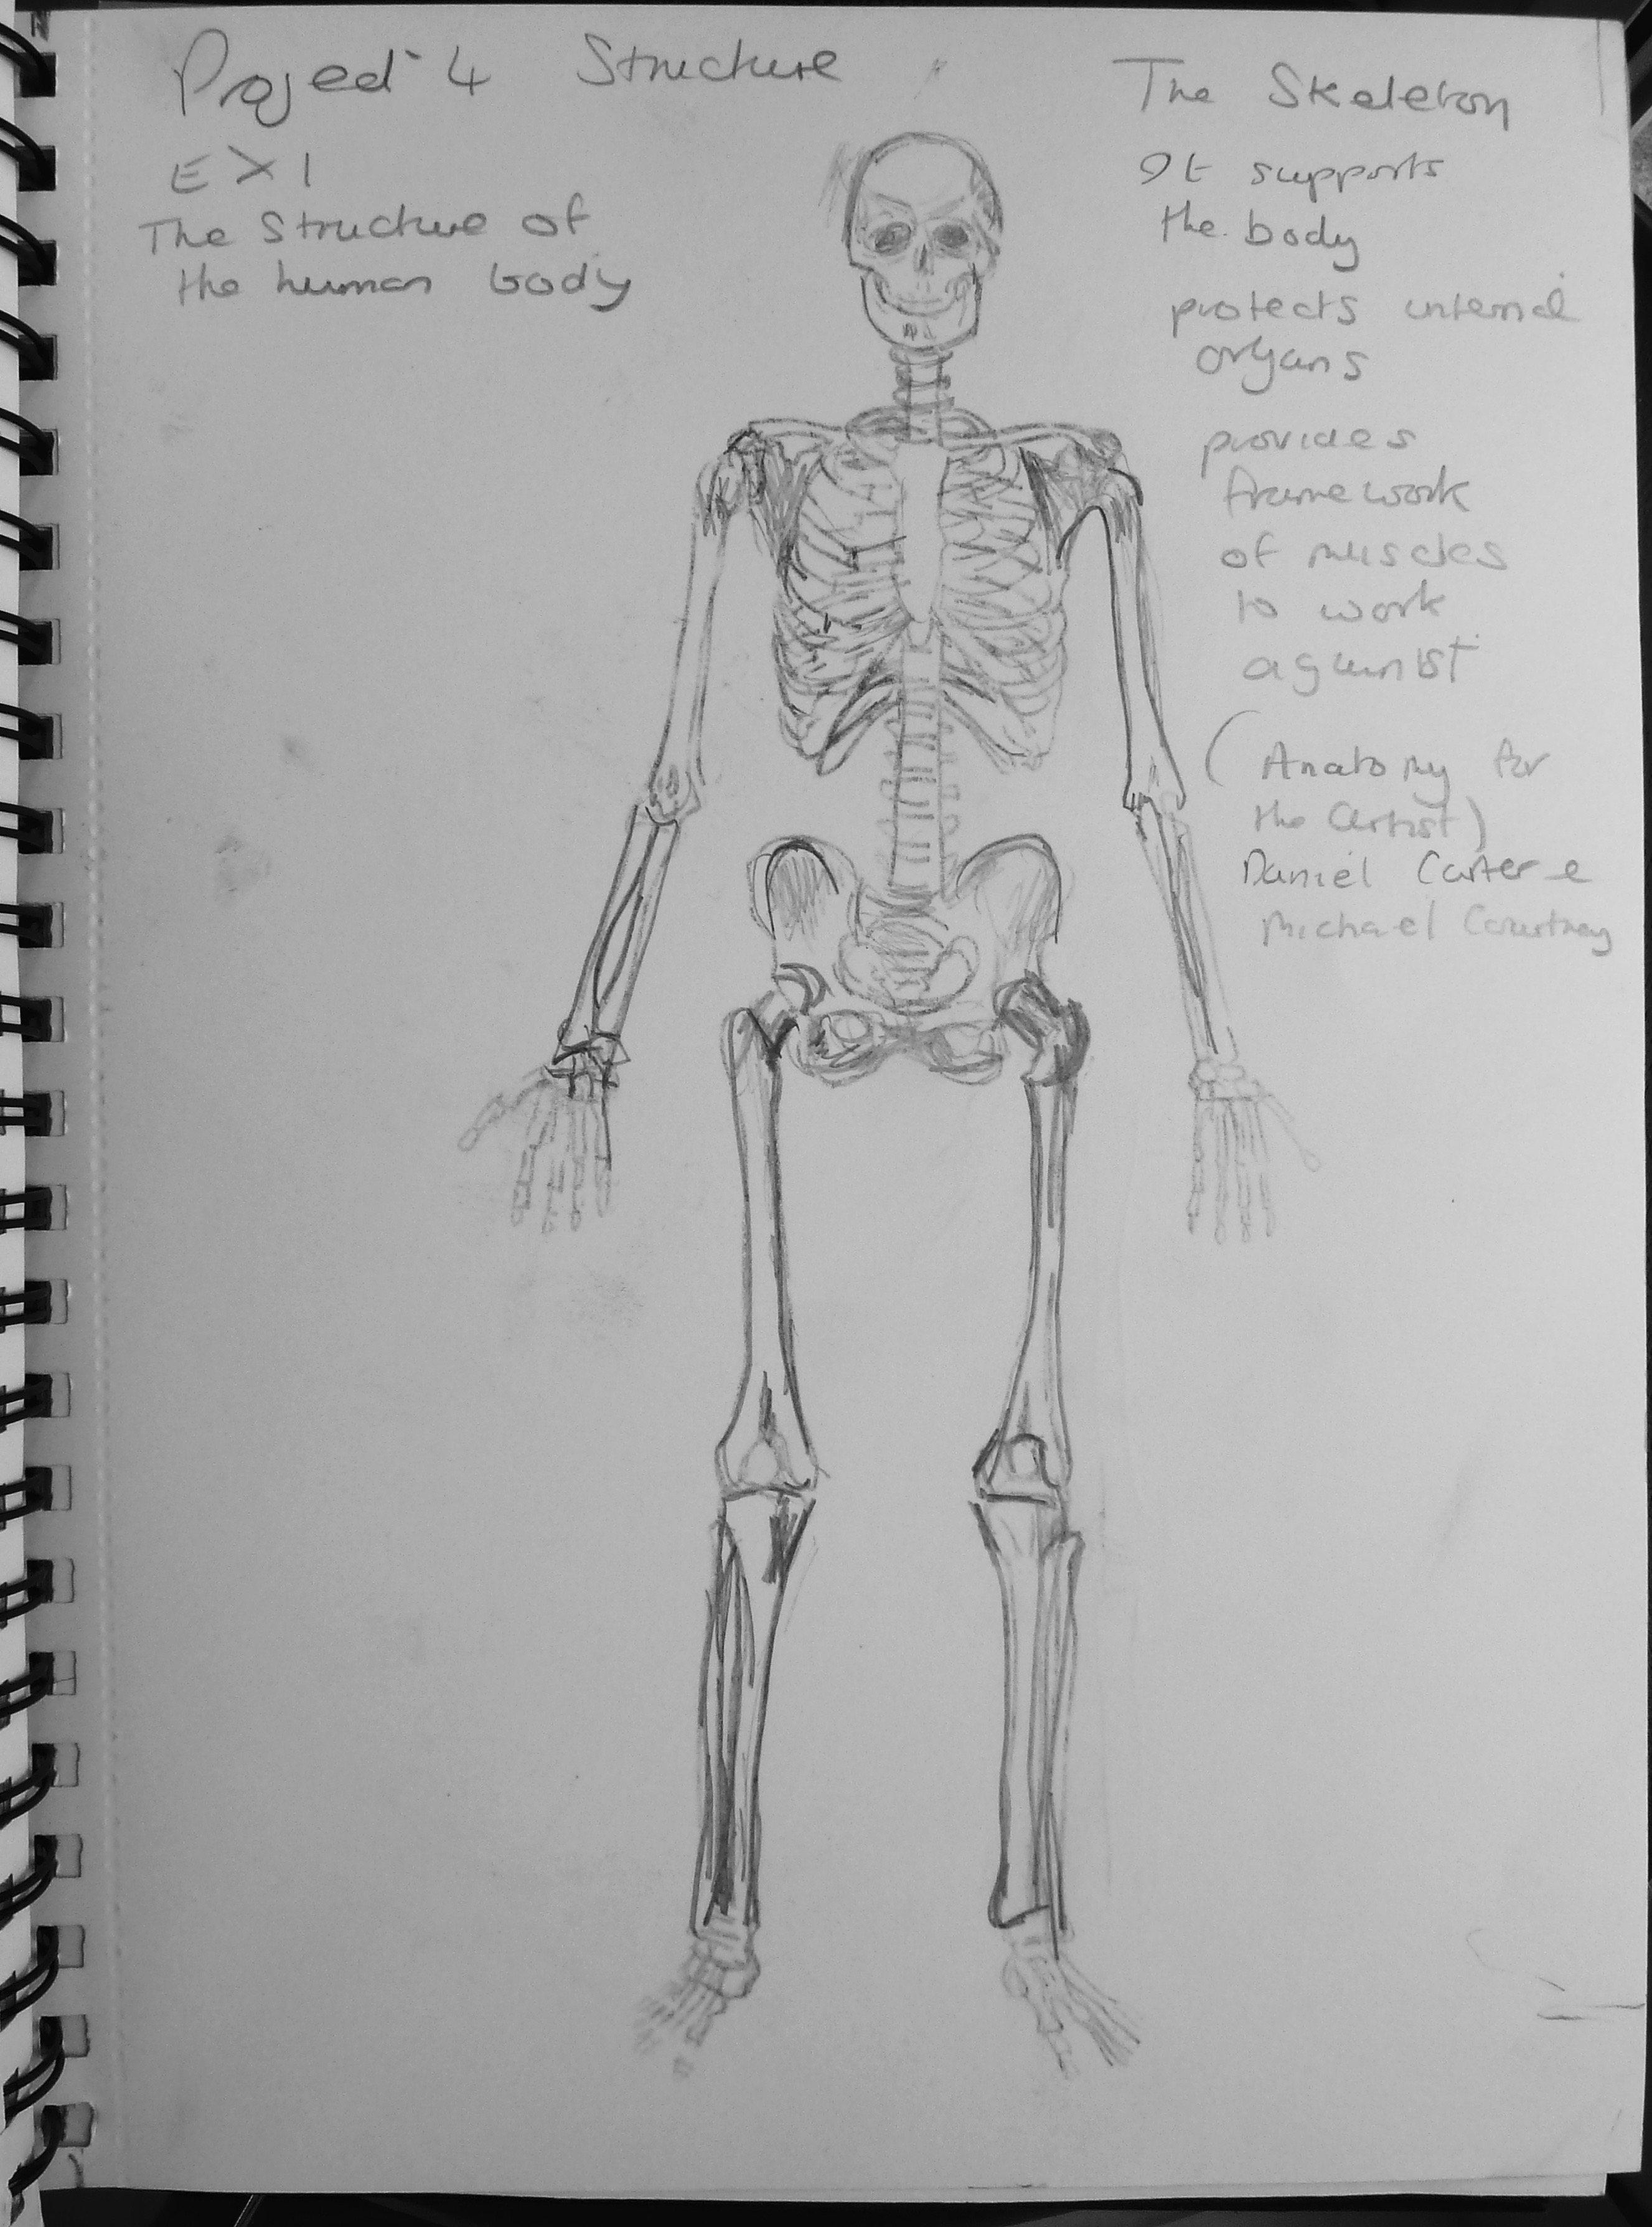 Project 4 Structure
EX 1
The Structure of
the human body
The Skeleton
It supports
the body
protects internal
organs
provides
framework
of muscles
to work
against
(Anatomy for
the Artist)
Daniel Carter &
Michael Courtney